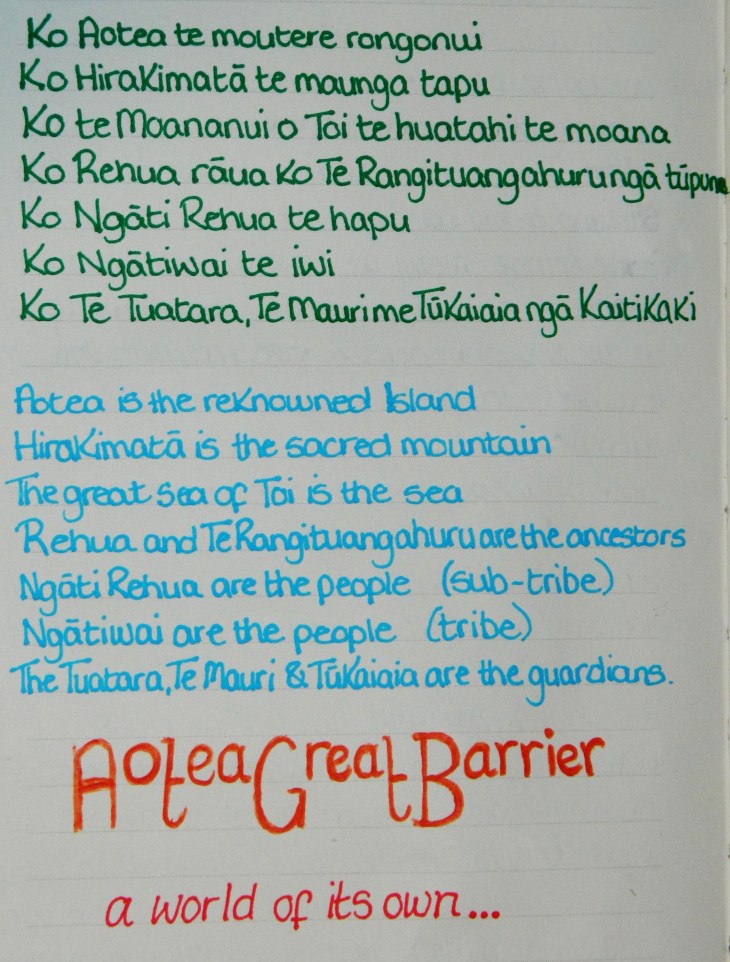 Ko Aotea te moutere rongonui
Ko Hirakimatā te maunga tapu
Ko te Moananui o Toi te huatahi te moana
Ko Rehua rāua Ko Te Rangituangahuru ngā tūpuna
Ko Ngāti Rehua te hapu
Ko Ngātiwai te iwi
Ko Te Tuatara, Te Mauri me Tūkaiaia ngā Kaitikaki
Aotea is the reknowned Island
Hirakimatā is the sacred mountain
The great Sea of Toi is the sea
Rehua and Te Rangituangahuru are the ancestors
Ngāti Rehua are the people (sub-tribe)
Ngātiwai are the people (tribe)
The Tuatara, Te Mauri & Tūkaiaia are the guardians.
Aotea Great Barrier
a world of its own...